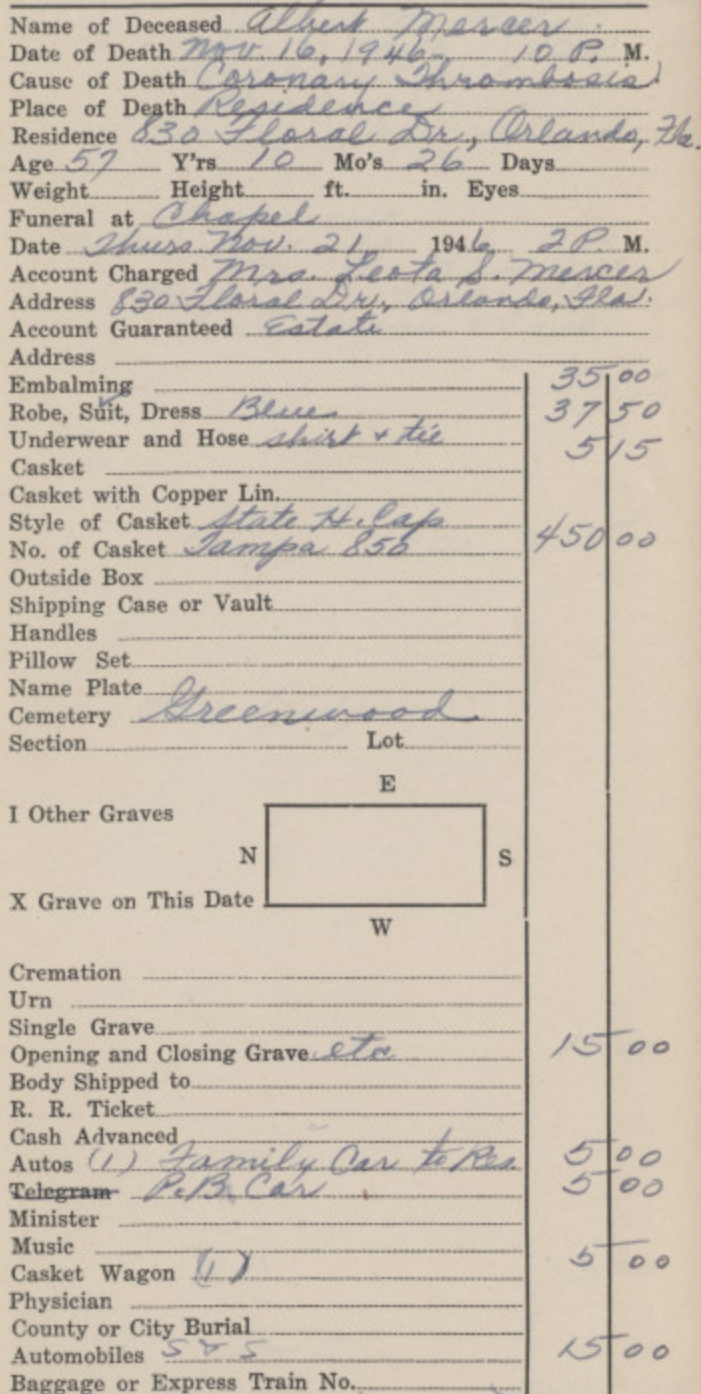 Name of Deceased Albert Mercer
Date of Death Nov. 16, 1946 10 P. M.
Cause of Death Coronary Thrombosis
Place of Death Residence
Residence 830 Floral Dr., Orlando, Fla.
Age 57 Y'rs 10 Mo's 26 Days
Weight Height ft. in. Eyes
Funeral at Chapel
Date Thurs Nov. 21 1946 2 P. M.
Account Charged Mrs. Leota S. Mercer
Address 830 Floral Dr., Orlando, Fla.
Account Guaranteed Estate
Address
Embalming 35 00
Robe, Suit, Dress Blue 37 50
Underwear and Hose shirt + tie 5 15
Casket
Casket with Copper Lin.
Style of Casket State H. Cap
No. of Casket Tampa 850 450 00
Outside Box
Shipping Case or Vault
Handles
Pillow Set
Name Plate
Cemetery Greenwood
Section Lot
E
I Other Graves
N S
X Grave on This Date
W
Cremation
Urn
Single Grave
Opening and Closing Grave etc 15 00
Body Shipped to
R. R. Ticket
Cash Advanced
Autos (1) Family Car to Res. 5 00
Telegram P.B. Car 5 00
Minister
Music
Casket Wagon (1) 5 00
Physician
County or City Burial
Automobiles S & S 15 00
Baggage or Express Train No.